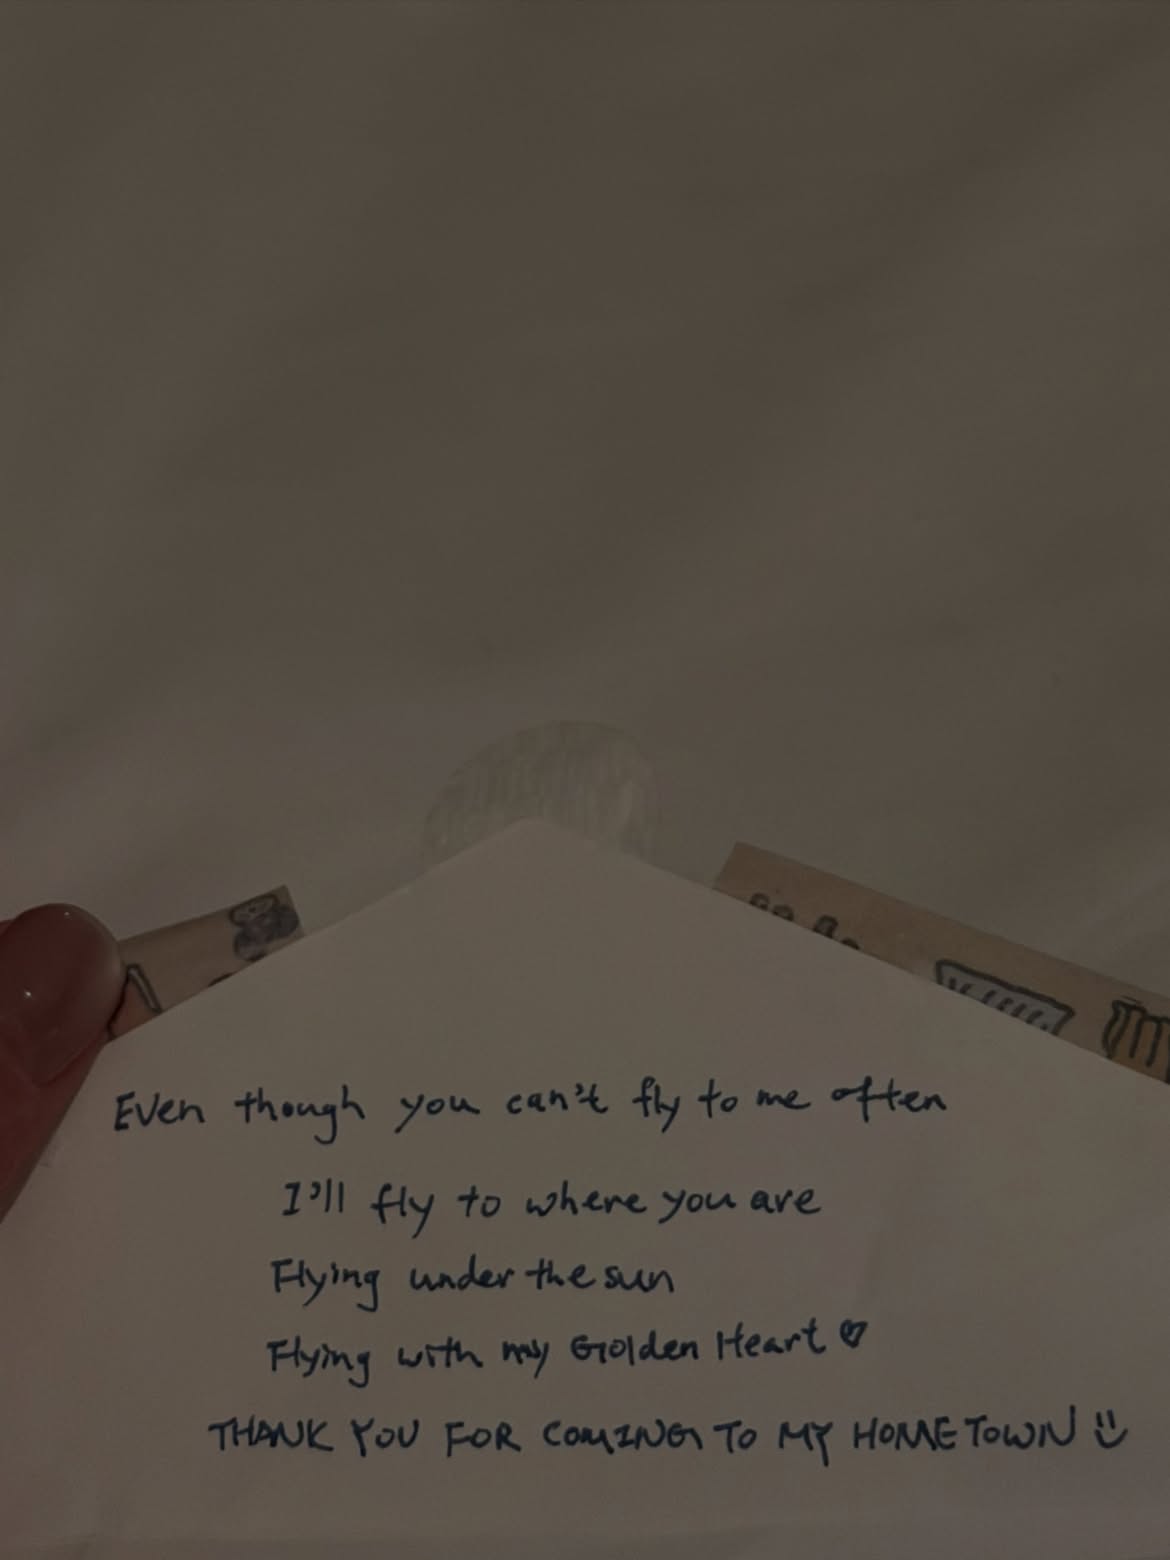 Even though you can't fly to me often
I'll fly to where you are
Flying under the sun
Flying with my Golden Heart ♡
THANK YOU FOR COMING TO MY HOMETOWN :)